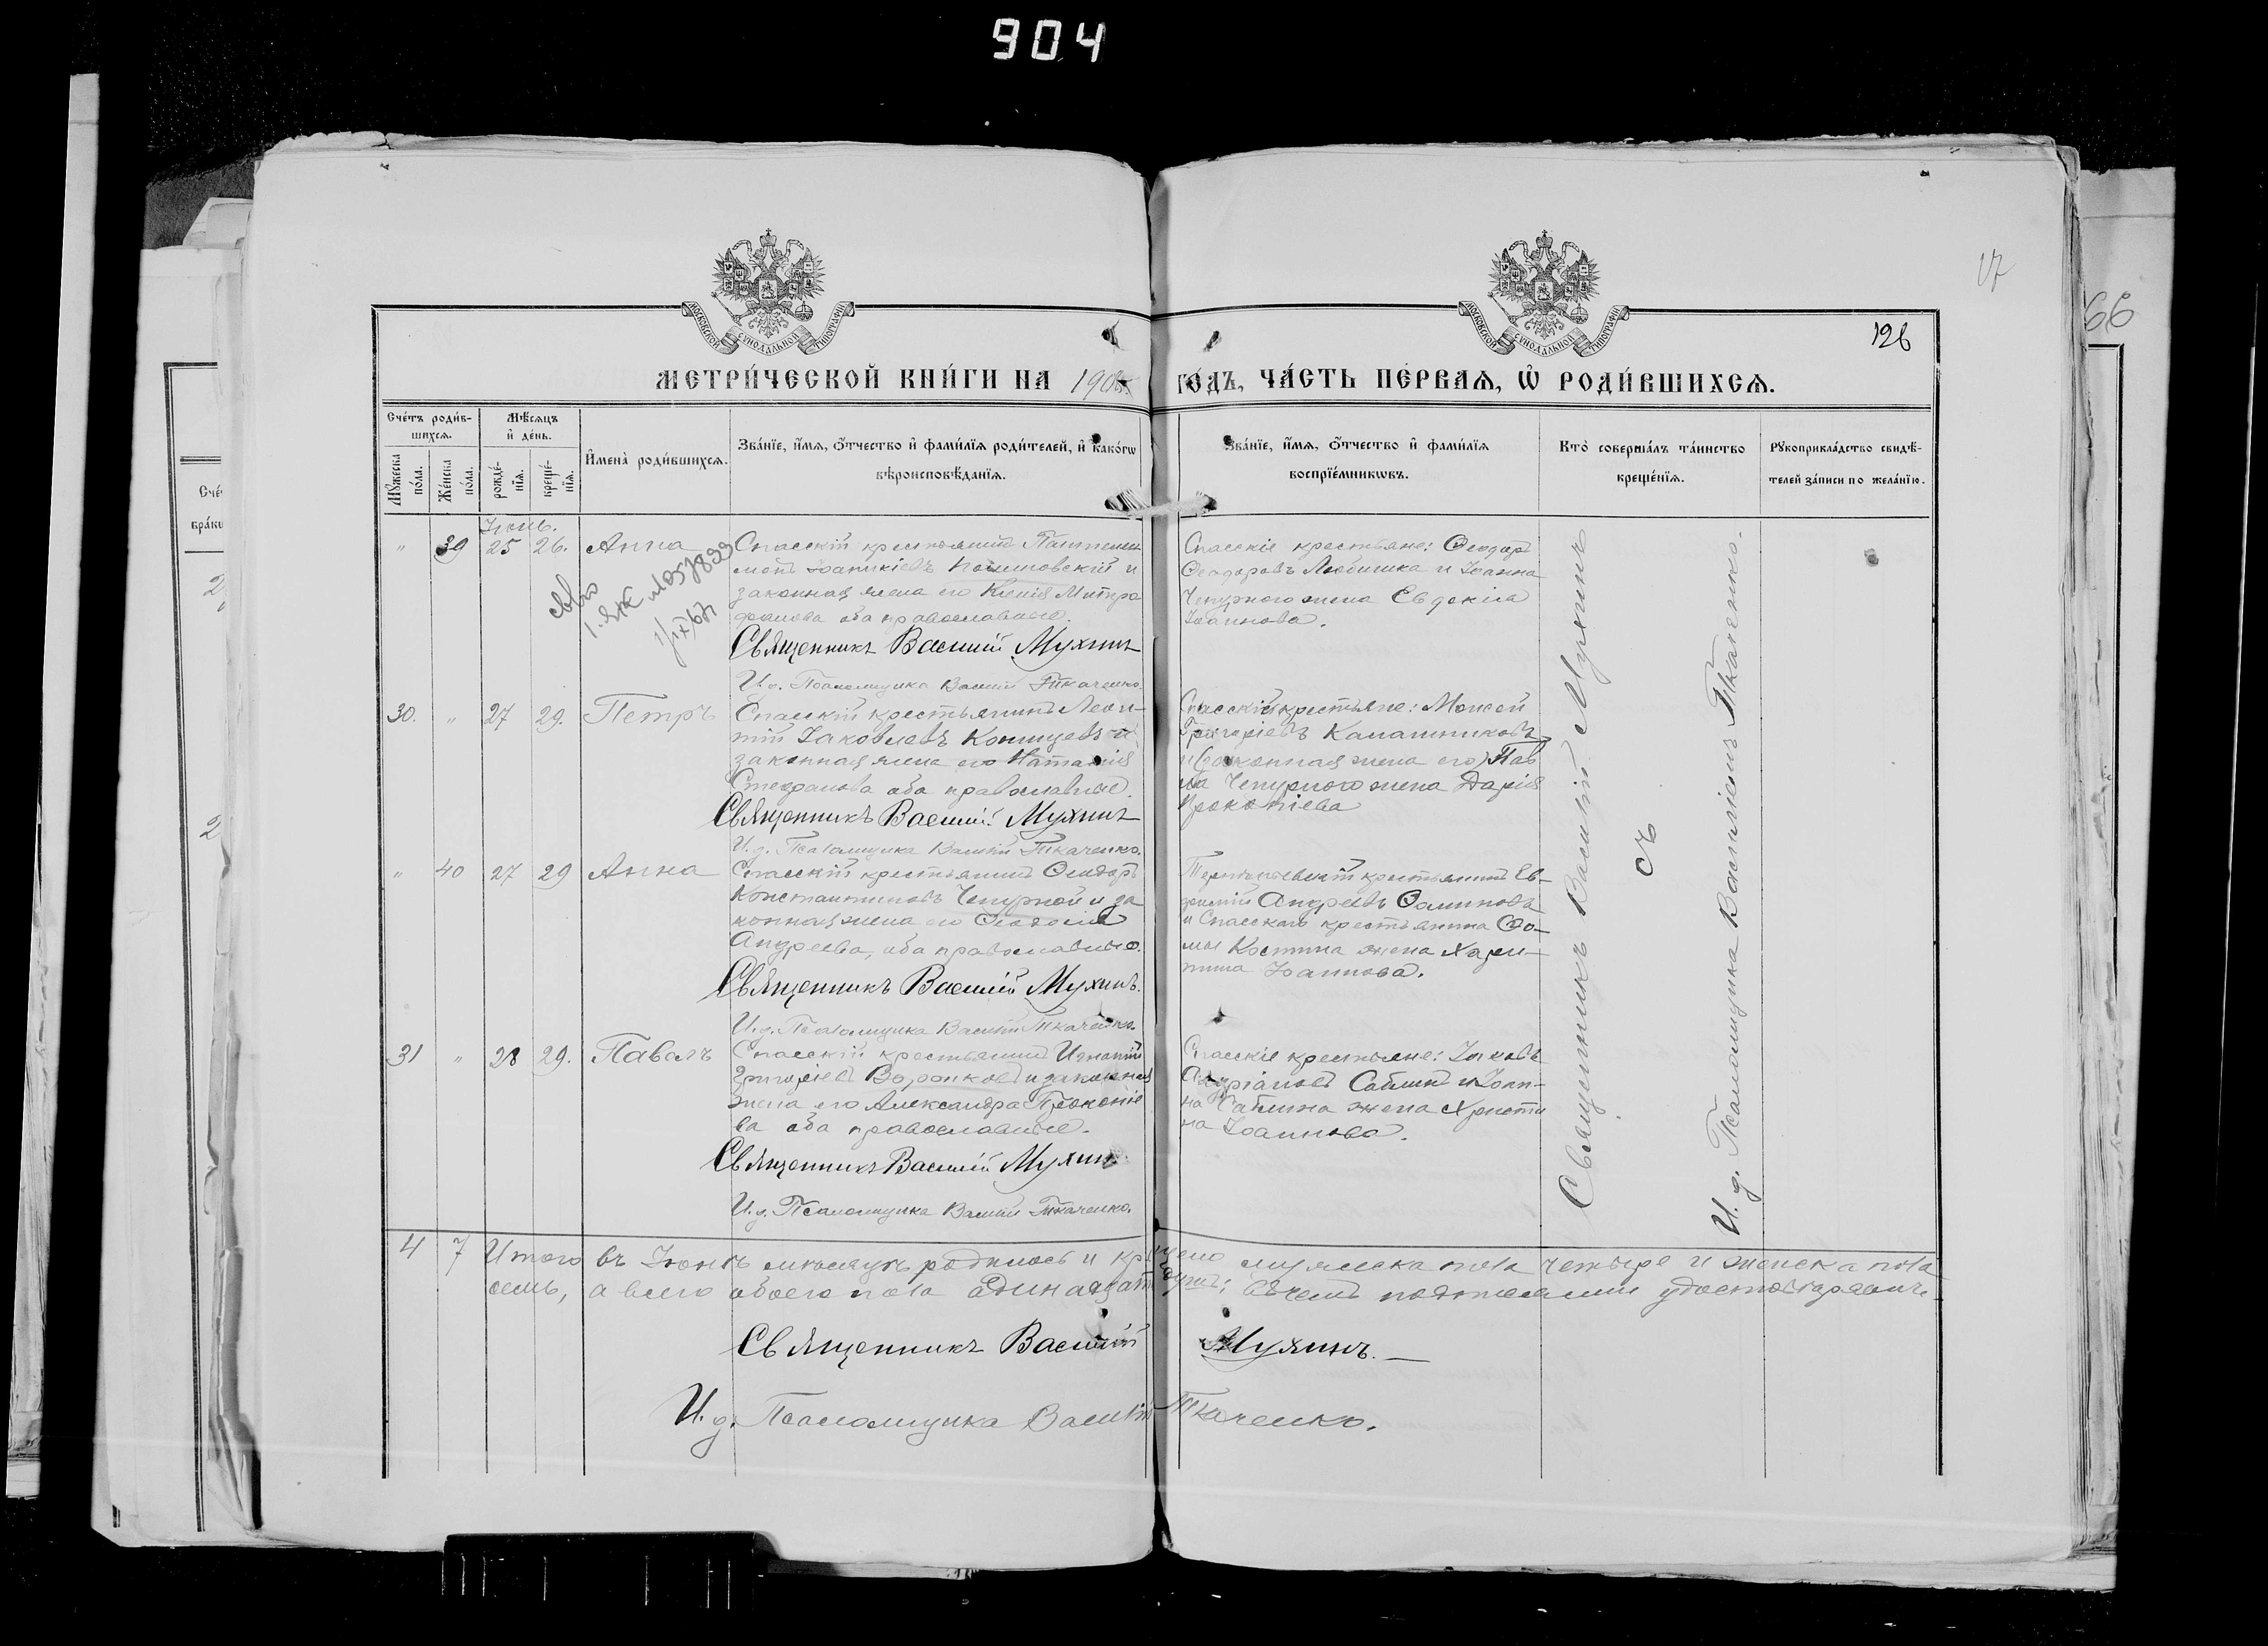 904
17
66
126
МОСКОВСКОЙ СѴНОДАЛЬНОЙ ТИПОГРАФІИ
МОСКОВСКОЙ СѴНОДАЛЬНОЙ ТИПОГРАФІИ
МЕТРИ́ЧЕСКОЙ КНИ́ГИ НА 190
ГО́ДЪ, ЧА́СТЬ ПЕ́РВАѦ, Ѡ҆ РОДИ́ВШИХСѦ.
Сче́тъ роди́в-
шихсѧ.
Мꙋ́жеска по́ла.
Же́нска по́ла.
Мѣ́сѧцъ
и҆ де́нь.
рожде́-
нїѧ.
креще́-
нїѧ.
И҆мена̀ роди́вшихсѧ.
Зва́нїе, и҆́мѧ, ѻ҆́тчество и҆ фами́лїѧ роди́телей, и҆ како́гѡ
вѣроисповѣ́данїѧ.
Зва́нїе, и҆́мѧ, ѻ҆́тчество и҆ фами́лїѧ
воспрїе́мникѡвъ.
Кто̀ соверша́лъ та́инство
креще́нїѧ.
Рꙋкоприкла́дство свидѣ́-
телей за́писи по жела́нїю.
Сче́
бра́ки
Іюнь.
" 39 25 26. Анна
Спасскій крестьянинъ Пантелеи
монъ Іоанникіевъ и
законная жена его Ксенія Митро
фанова оба православные.
Священникъ Василій Мухинъ
И. д. Псаломщика Василій Ткаченко.
Спасскіе крестьяне: Ѳеодоръ
Ѳеодоровъ Любишка и Іоанна
Чепурного жена Евдокіа
Іоаннова.
30. " 27 29. Петръ
Спасскій крестьянинъ Леон-
тій Іаковлевъ Конщевъ и
законная жена его Наталія
Стефанова оба православные.
Священникъ Василій Мухинъ
И. д. Псаломщика Василій Ткаченко.
Спасскій крестьяне: Моисей
Григоріевъ Калашниковъ
и (законная жена его) Пав
ла Чепурного жена Дарія
Прокопіева
" 40 27 29 Анна
Спасскій крестьянинъ Ѳеодоръ
Константиновъ Чепурной и за
конная жена его Ѳеодосія
Андреева, оба православные.
Священникъ Василій Мухинъ.
И. д. Псаломщика Василій Ткаченко.
крестьянинъ Ев-
фимій Андреевъ Ѳоминовъ
и Спасскаго крестьянина Ѳо-
мы Костина жена Хари-
тина Іоаннова.
31 " 28 29. Павелъ
Спасскій крестьянинъ Игнатій
Григоріевъ Воронковъ и законная
жена его Александра Прокопіе
ва оба православные.
Священникъ Василій Мухинъ.
И. д. Псаломщика Василій Ткаченко.
Спасскіе крестьяне: Іаковъ
Андріановъ Саблинъ и Іоан-
на Саблина жена Христи
на Іоаннова.
Священникъ Василій Мухинъ
съ
И. д. Псаломщика Василіемъ Ткаченко.
4 7 Итого въ Іюнѣ мѣсяцѣ родилось и крещено мужеска пола четыре и женска пола
семь, а всего обоего пола одинадцать душъ; въ чемъ подписями удостовѣряемъ
Священникъ Василій Мухинъ.
И. д. Псаломщика Василій Ткаченко.